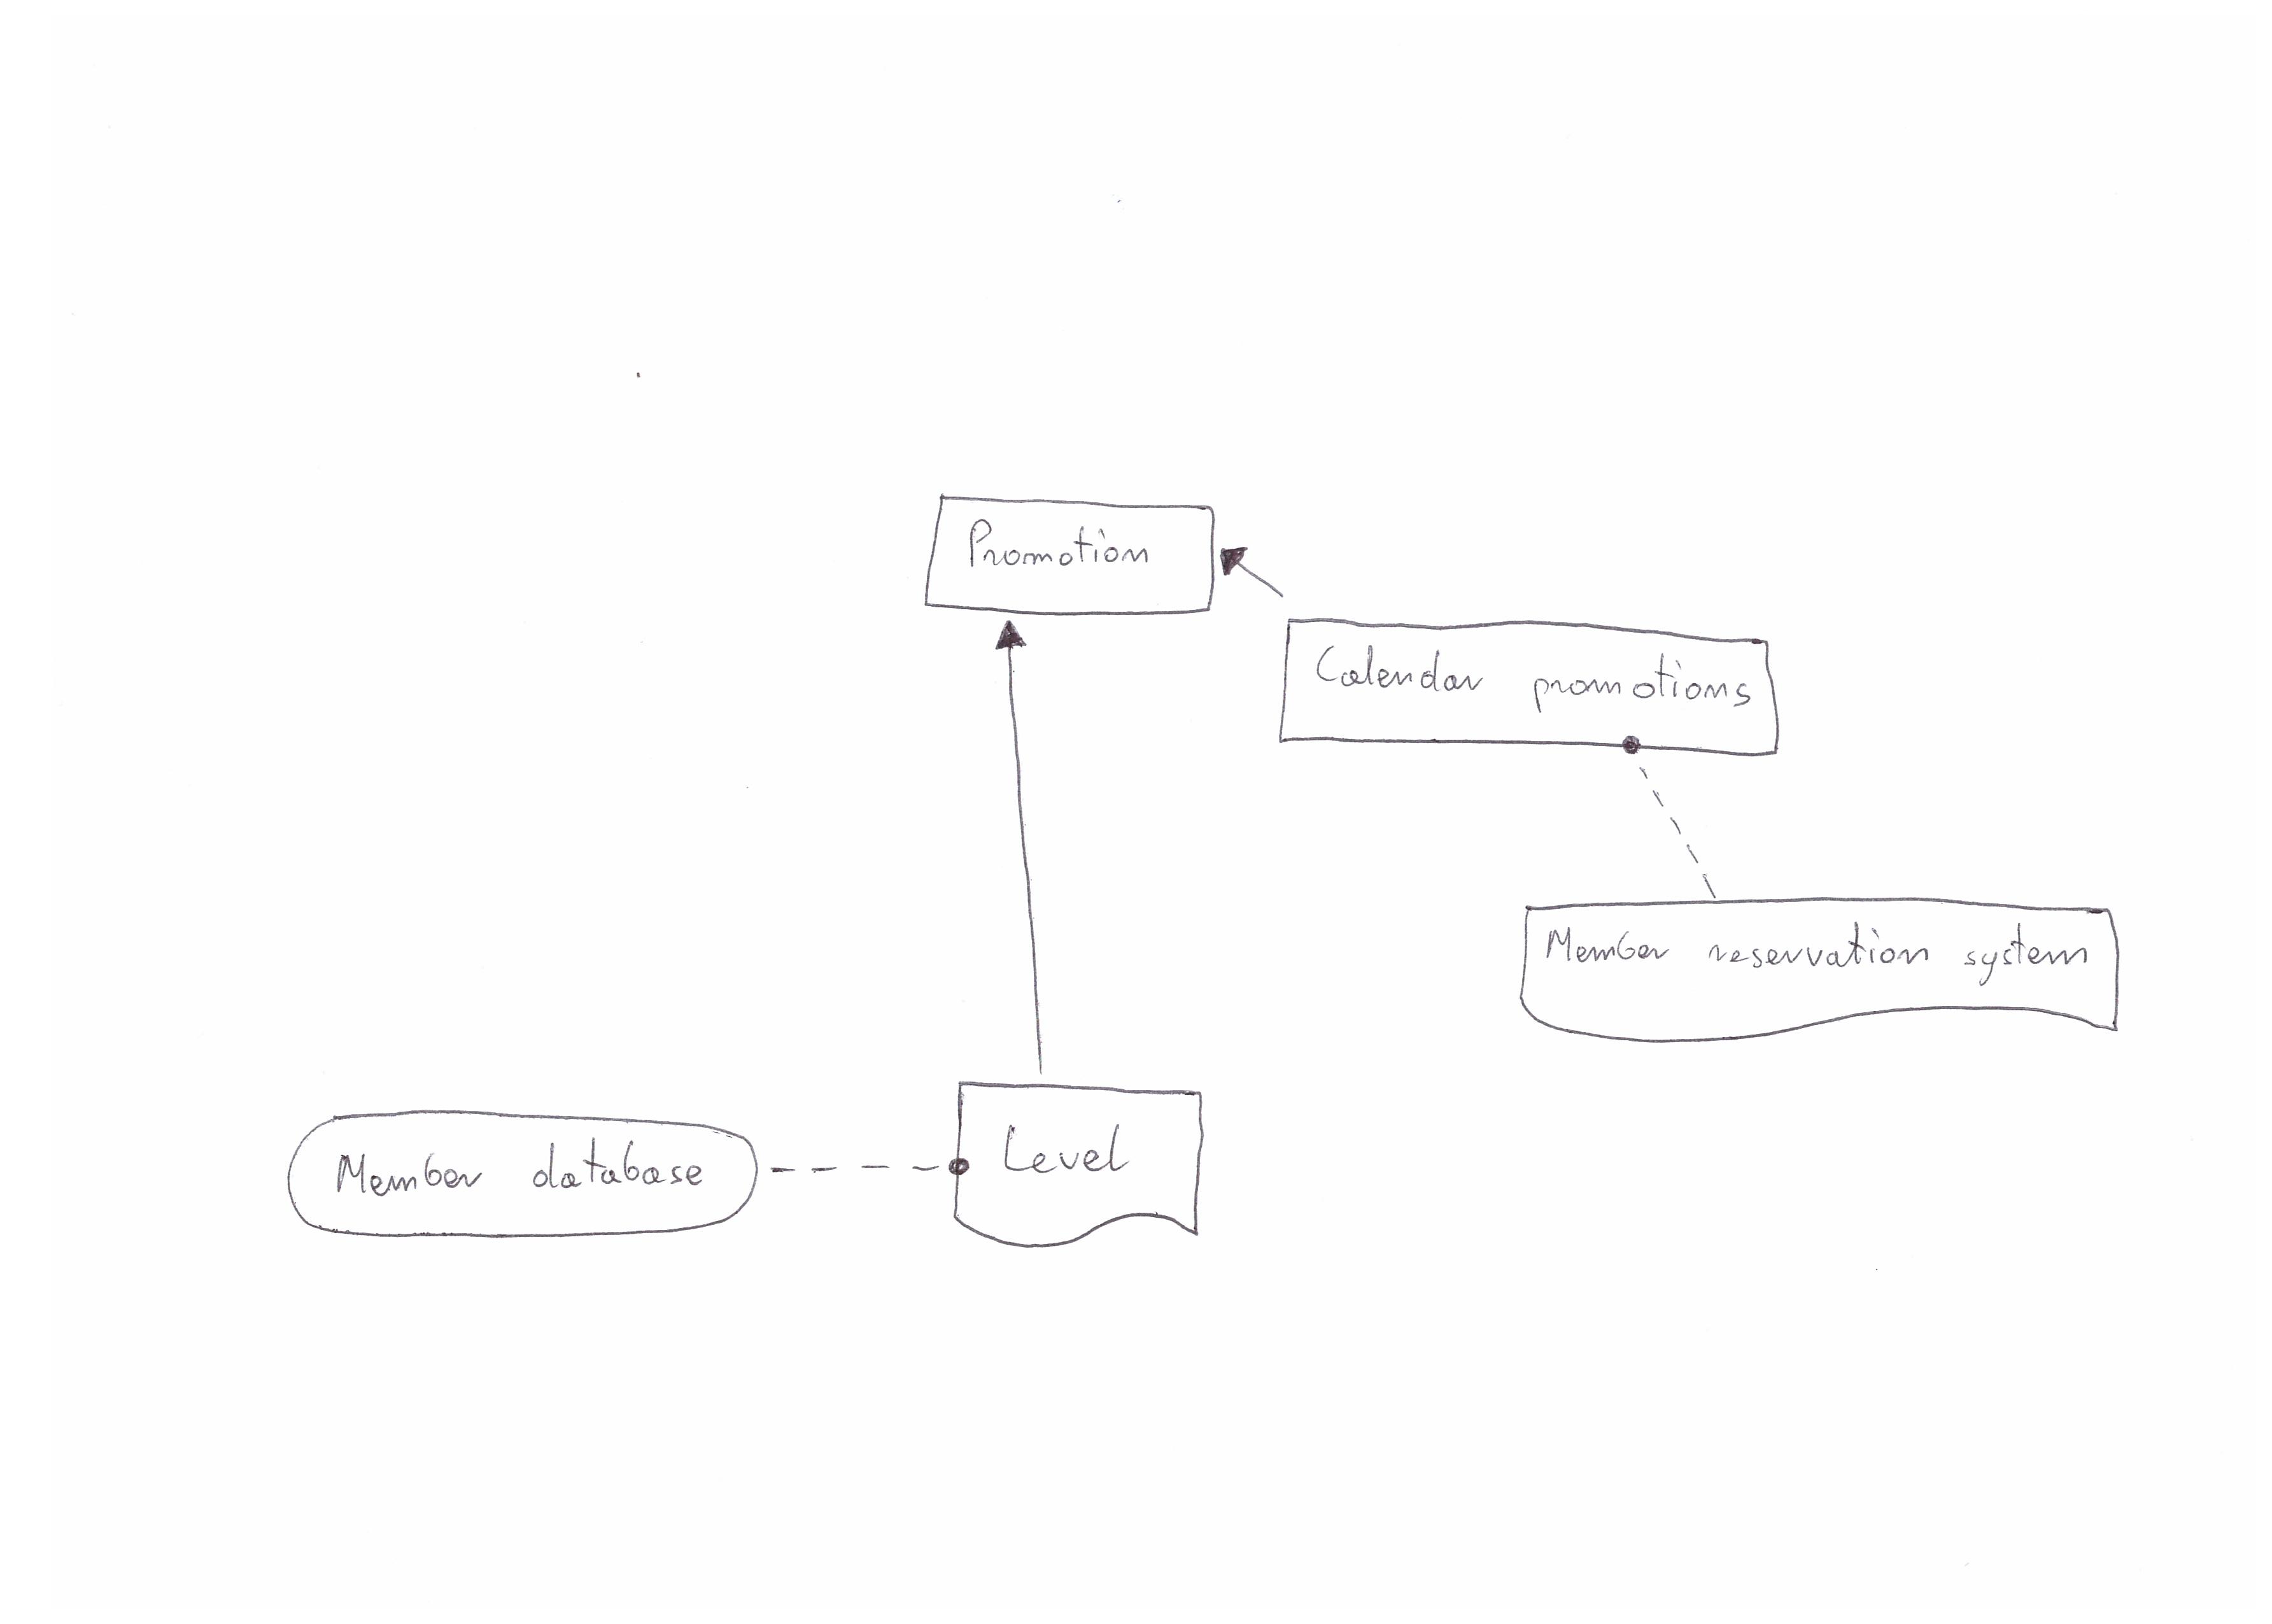 Promotion
Calendar promotions
Member reservation system
Level
Member database